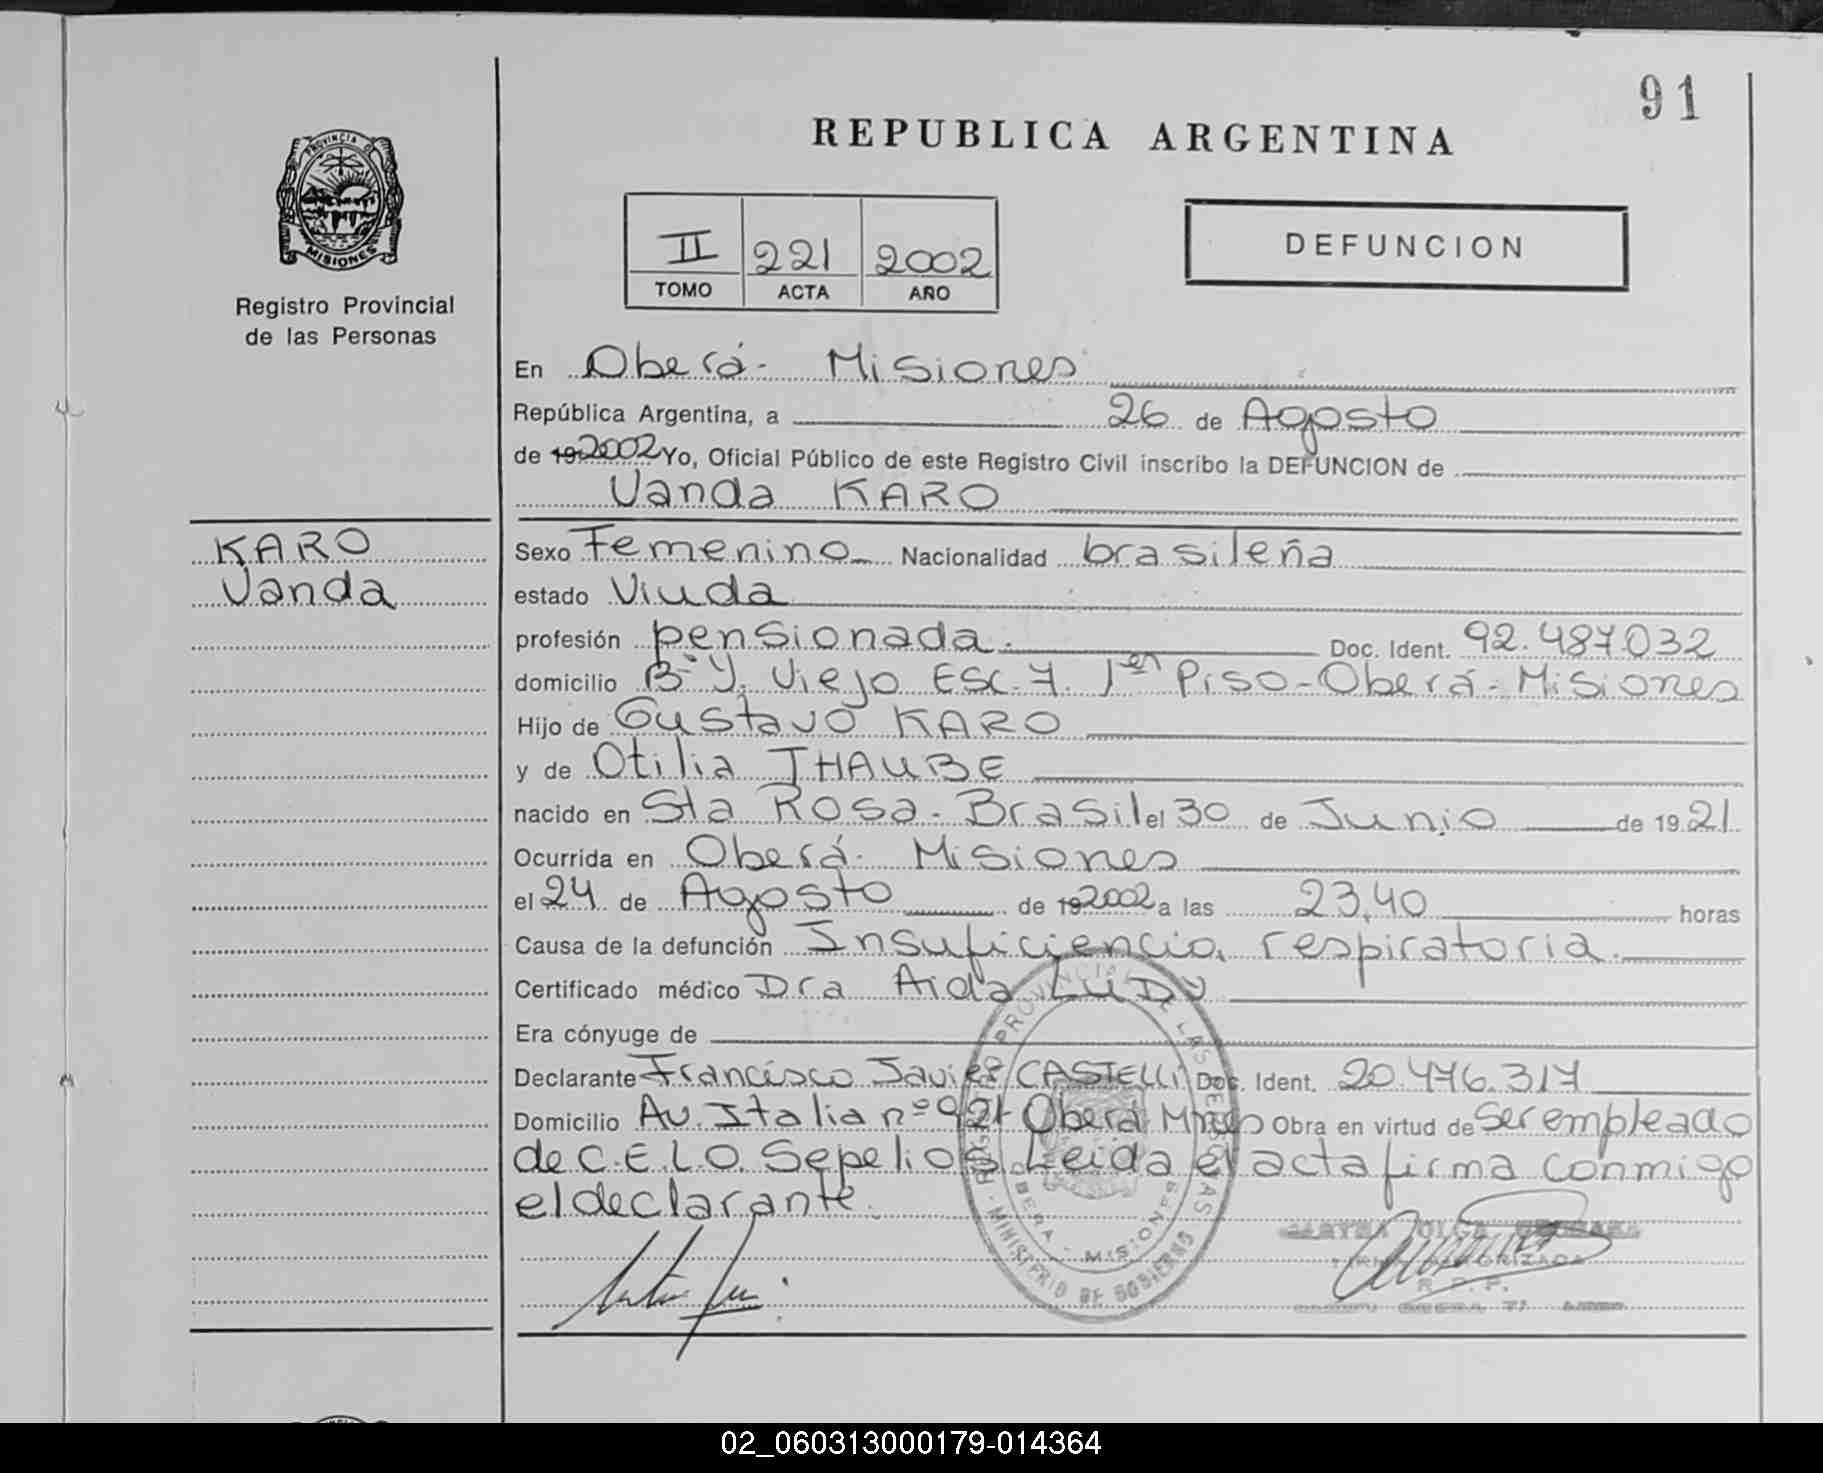 91
REPUBLICA ARGENTINA
PROVINCIA DE
MISIONES
Registro Provincial
de las Personas
II 221 2002
TOMO ACTA AÑO
DEFUNCION
En Oberá - Misiones
República Argentina, a 26 de Agosto
de 19 2002 Yo, Oficial Público de este Registro Civil inscribo la DEFUNCION de
Vanda KARO
KARO
Vanda
Sexo Femenino Nacionalidad brasileña
estado Viuda
profesión pensionada. Doc. Ident. 92.487.032
domicilio Bº Y. Viejo Esc. 7. 1er Piso - Oberá - Misiones
Hijo de Gustavo KARO
y de Otilia THAUBE
nacido en Sta Rosa - Brasil el 30 de Junio de 19 21
Ocurrida en Oberá - Misiones
el 24 de Agosto de 19 2002 a las 23,40 horas
Causa de la defunción Insuficiencia respiratoria.
Certificado médico Dra Aida LUDY
Era cónyuge de
Declarante Francisco Javier CASTELLI Doc. Ident. 20.446.317
Domicilio Av. Italia nº 921 Oberá Mnes Obra en virtud de ser empleado
de C.E.L.O. Sepelios. Leida el acta firma conmigo
el declarante.
REGISTRO PROVINCIAL DE LAS PERSONAS
OBERA - MISIONES
MINISTERIO DE GOBIERNO
OLGA
FIRMA AUTORIZADA
R. P. P.
02_060313000179-014364